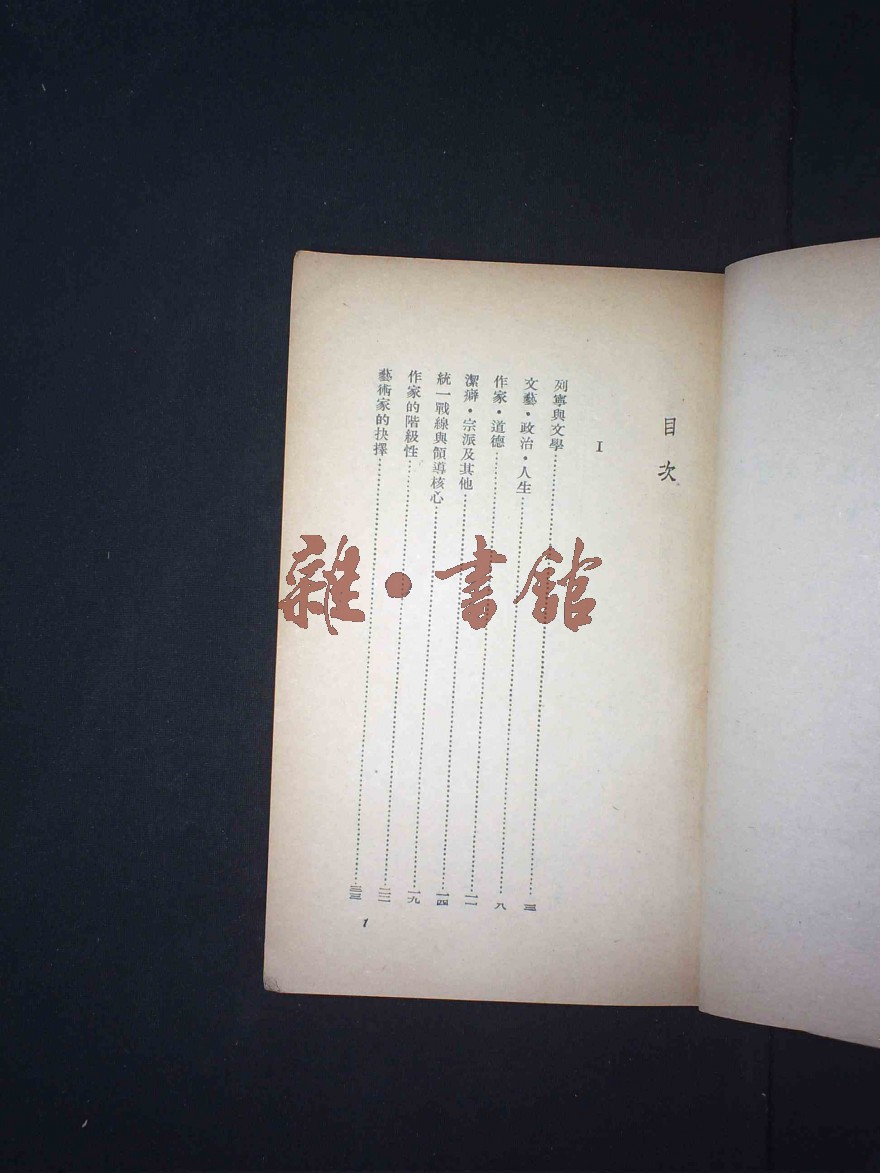 目次
I
列寧與文學……三
文藝・政治・人生……八
作家・道德……一一
潔癖・宗派及其他……一四
統一戰線與領導核心……一九
作家的階級性……
藝術家的抉擇……
1
雜・書館